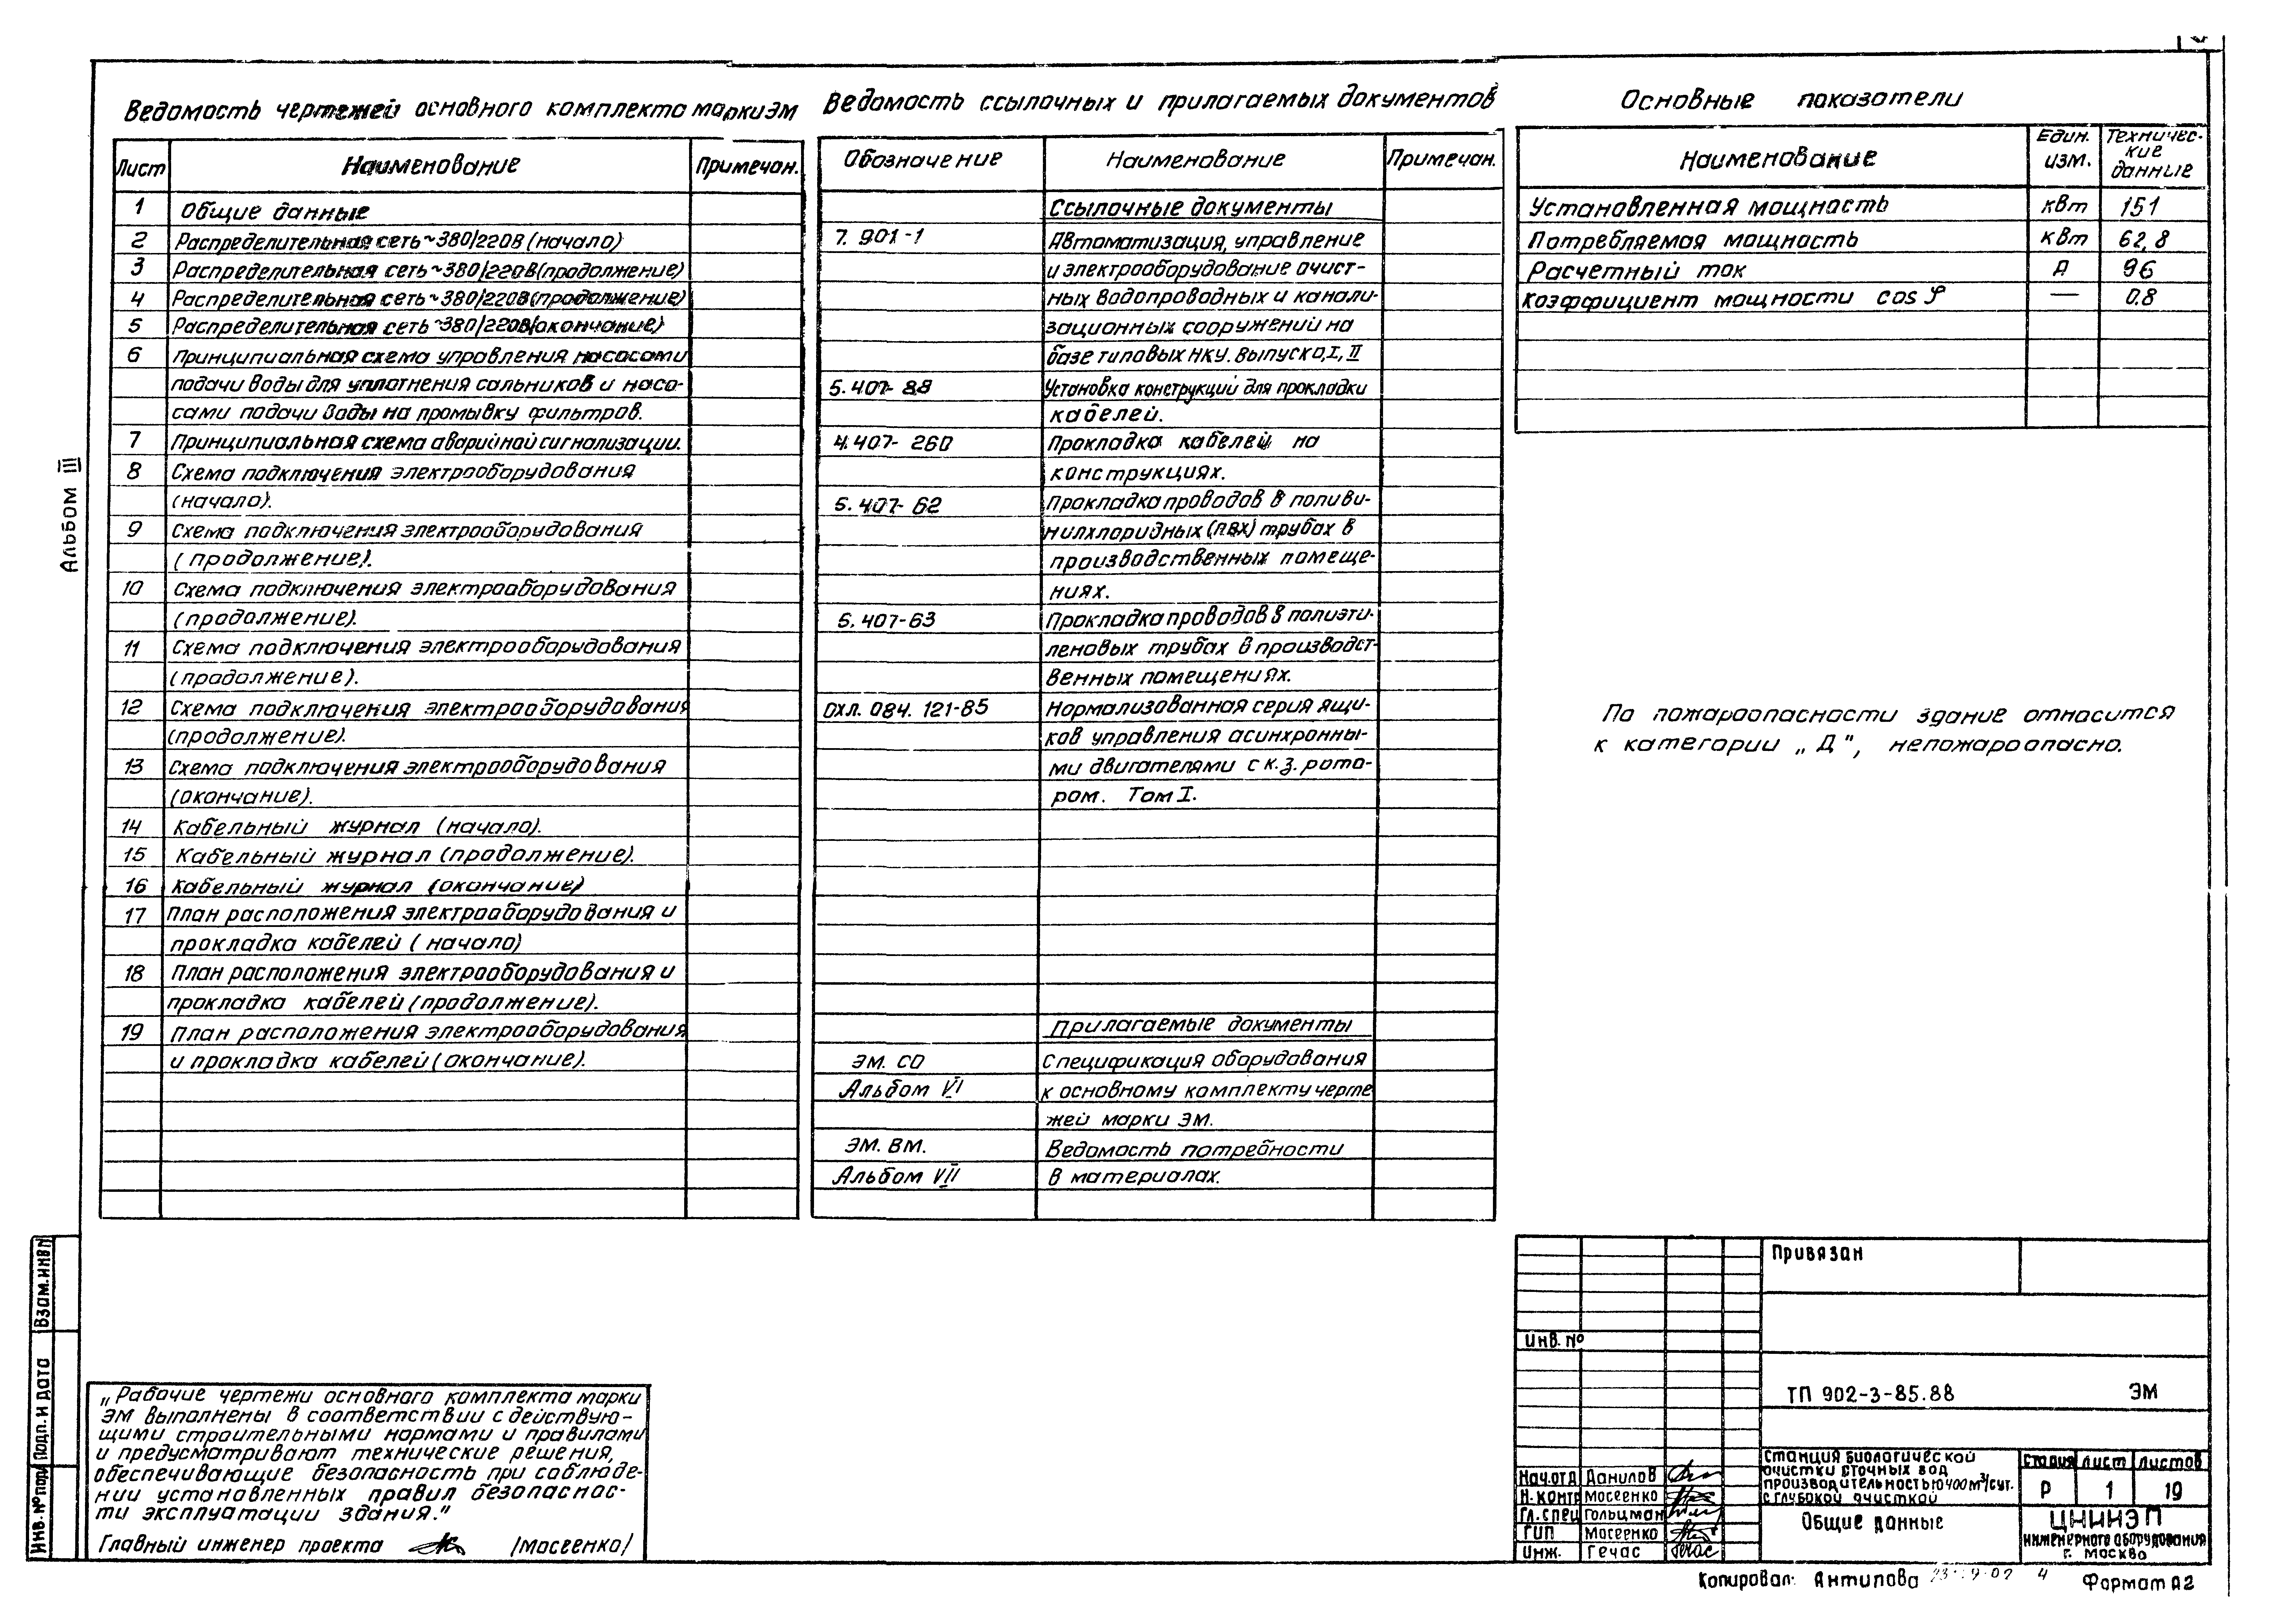 Альбом III
Ведомость чертежей основного комплекта марки ЭМ
Лист Наименование Примечан.
1 Общие данные
2 Распределительная сеть ~380/220В (начало)
3 Распределительная сеть ~380/220В (продолжение)
4 Распределительная сеть ~380/220В (продолжение)
5 Распределительная сеть ~380/220В (окончание)
6 Принципиальная схема управления насосами
подачи воды для уплотнения сальников и насо-
сами подачи воды на промывку фильтров.
7 Принципиальная схема аварийной сигнализации.
8 Схема подключения электрооборудования
(начало).
9 Схема подключения электрооборудования
(продолжение).
10 Схема подключения электрооборудования
(продолжение).
11 Схема подключения электрооборудования
(продолжение).
12 Схема подключения электрооборудования
(продолжение).
13 Схема подключения электрооборудования
(окончание).
14 Кабельный журнал (начало).
15 Кабельный журнал (продолжение).
16 Кабельный журнал (окончание)
17 План расположения электрооборудования и
прокладка кабелей (начало)
18 План расположения электрооборудования и
прокладка кабелей (продолжение).
19 План расположения электрооборудования
и прокладка кабелей (окончание).
Ведомость ссылочных и прилагаемых документов
Обозначение Наименование Примечан.
Ссылочные документы
7.901-1 Автоматизация, управление
и электрооборудование очист-
ных водопроводных и канали-
зационных сооружений на
базе типовых НКУ. Выпуск 0, I, II
5.407-88 Установка конструкций для прокладки
кабелей.
4.407-260 Прокладка кабелей на
конструкциях.
5.407-62 Прокладка проводов в поливи-
нилхлоридных (ПВХ) трубах в
производственных помеще-
ниях.
5.407-63 Прокладка проводов в полиэти-
леновых трубах в производст-
венных помещениях.
ОХЛ. 084. 121-85 Нормализованная серия ящи-
ков управления асинхронны-
ми двигателями с к.з. рото-
ром. Том I.
Прилагаемые документы
ЭМ. СО Спецификация оборудования
Альбом VI к основному комплекту черте
жей марки ЭМ.
ЭМ. ВМ. Ведомость потребности
Альбом VII в материалах.
Основные показатели
Наименование Един. изм. Техничес-кие данные
Установленная мощность кВт 151
Потребляемая мощность кВт 62,8
Расчетный ток А 96
Коэффициент мощности cos φ — 0.8
По пожароопасности здание относится
к категории „Д", непожароопасно.
Взам. инв N
Подп. и дата
Инв. № подл
„Рабочие чертежи основного комплекта марки
ЭМ выполнены в соответствии с действую-
щими строительными нормами и правилами
и предусматривают технические решения,
обеспечивающие безопасность при соблюде-
нии установленных правил безопаснос-
ти эксплуатации здания."
Главный инженер проекта /Мосеенко/
Привязан
Инв. №
ТП 902-3-85.88 ЭМ
Нач.отд Данилов
Н. контр Мосеенко
Гл. спец Гольцман
ГИП Мосеенко
Инж. Гечас
Станция биологической
очистки сточных вод
производительностью 400 м³/сут.
с глубокой очисткой
Стадия Лист Листов
Р 1 19
Общие данные
ЦНИИЭП
инженерного оборудования
г. Москва
Копировал: Антипова 4 Формат А2